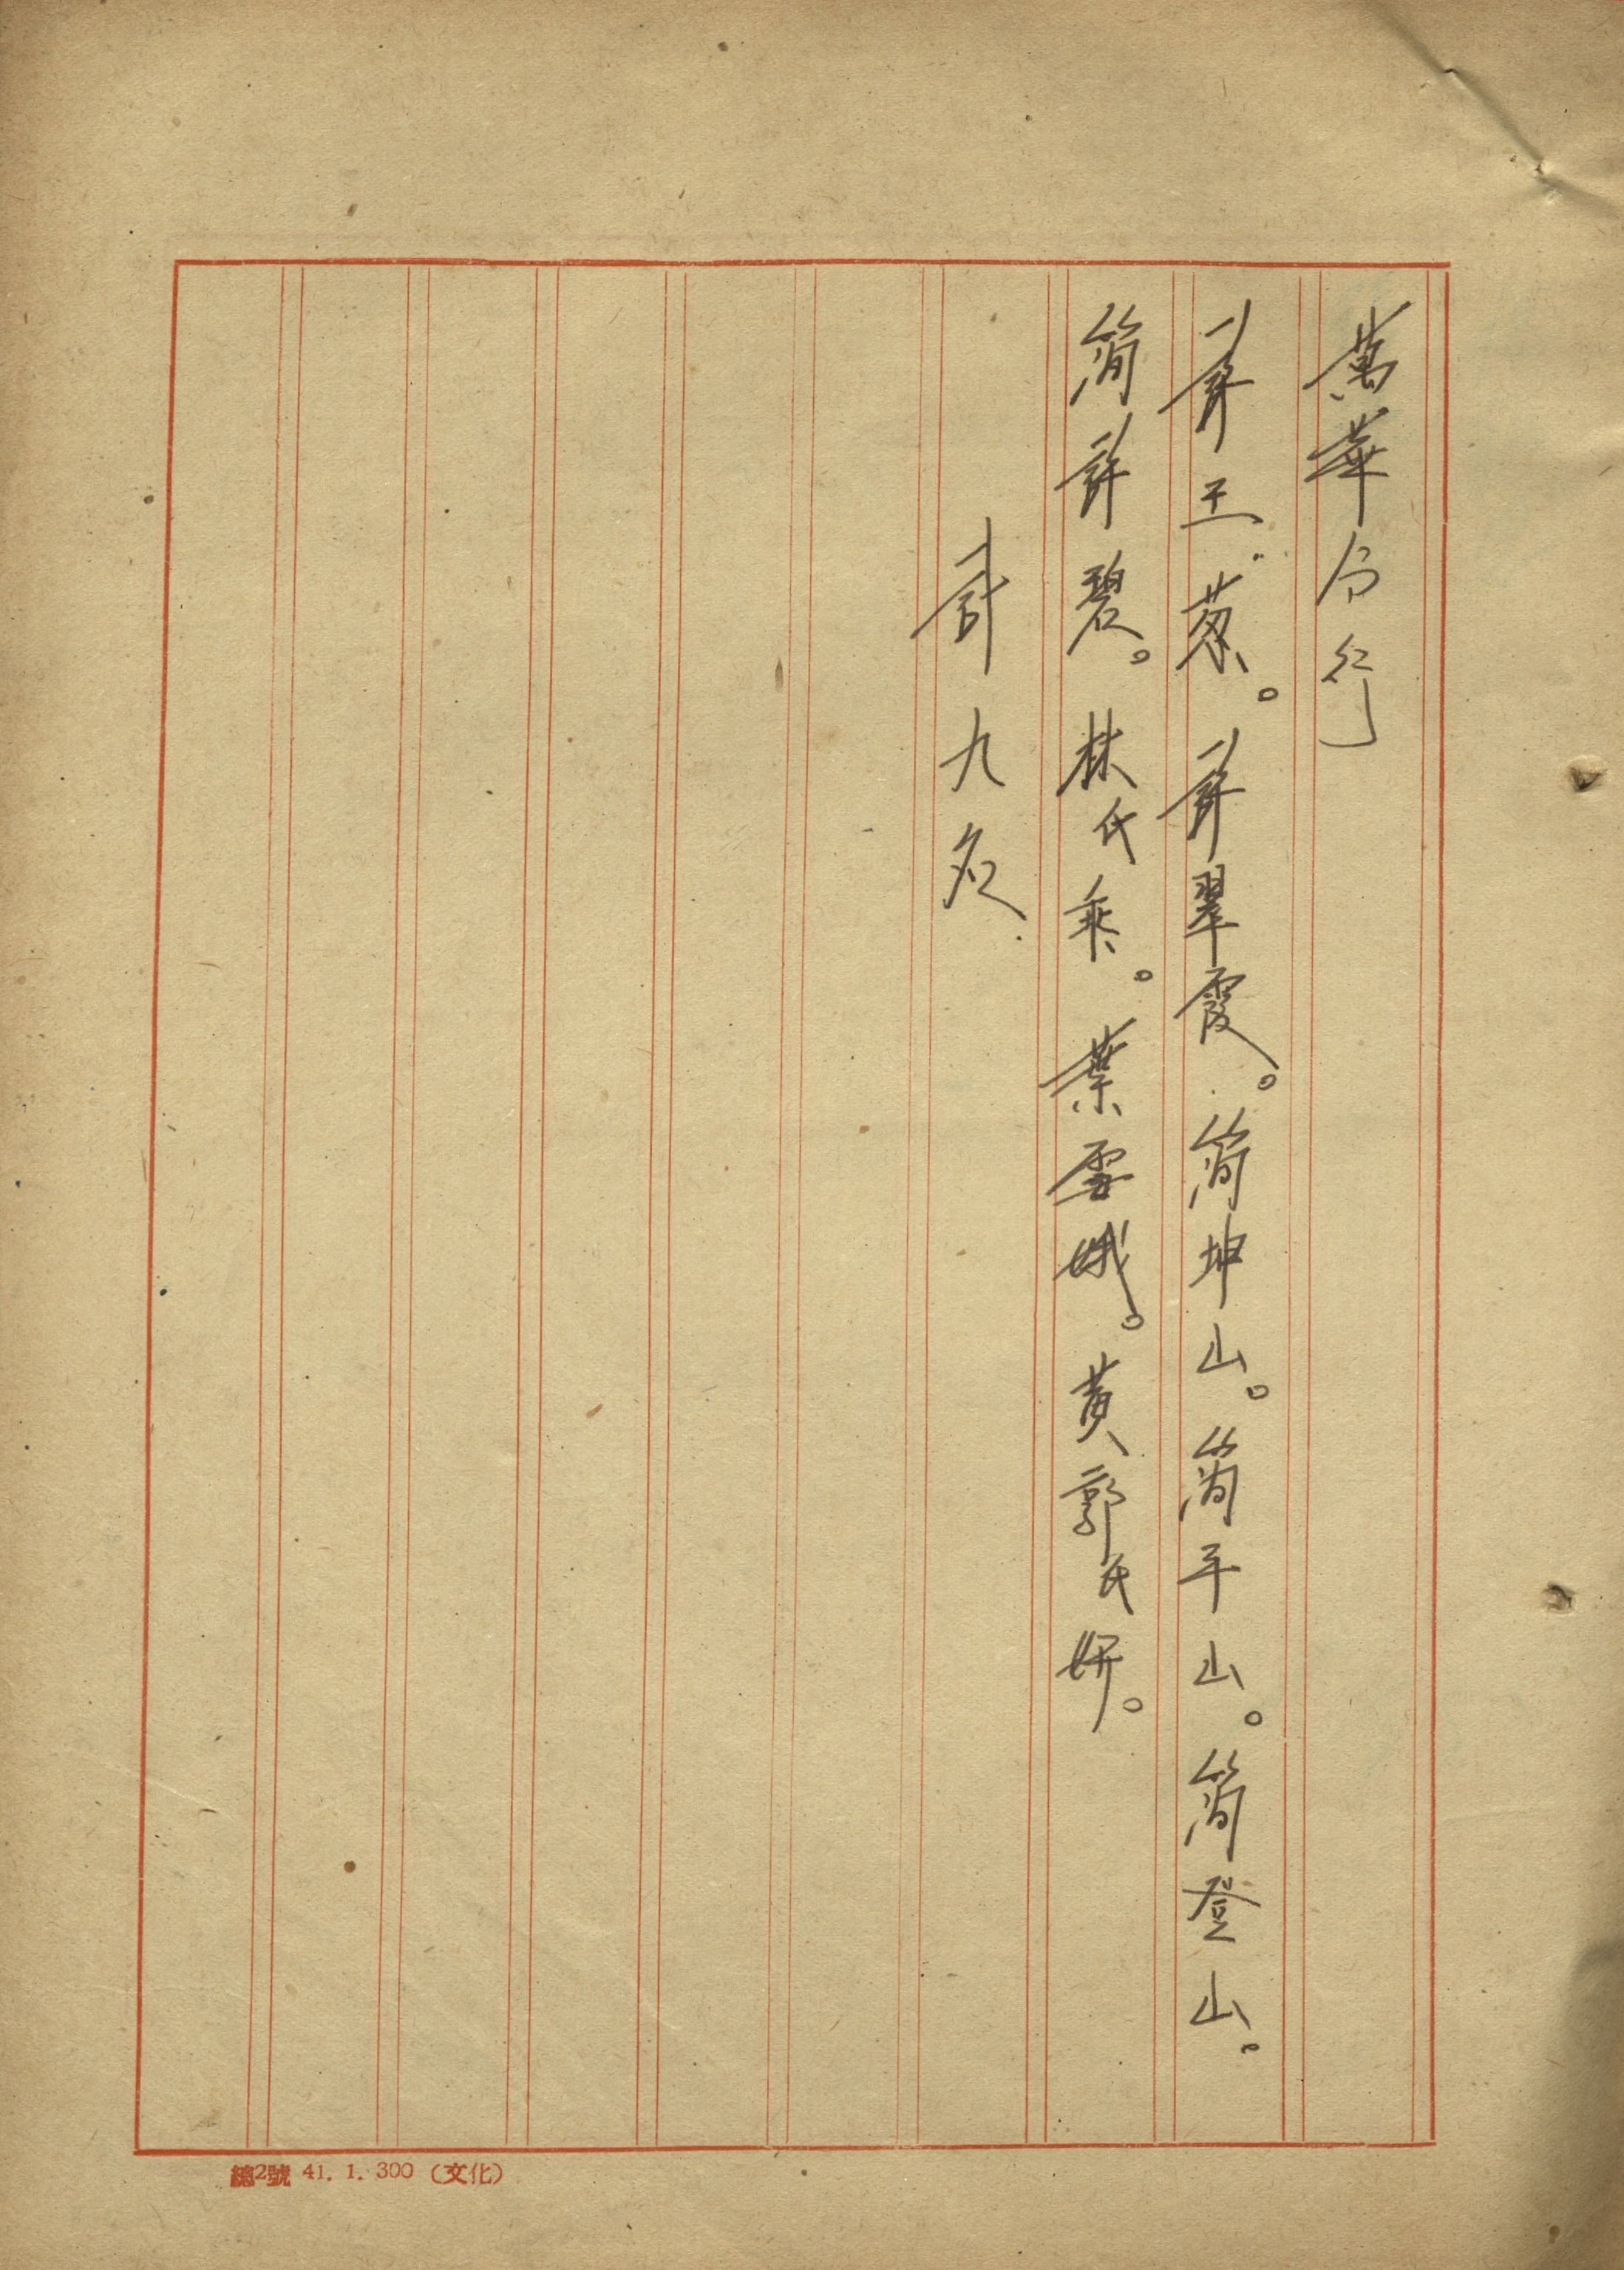 萬華分行
許王蔥。許翠霞。簡坤山。簡平山。簡登山。
簡許碧。林氏乘。葉雲娥。黃郭氏妍。
計九名
總2號 41. 1. 300 (文化)